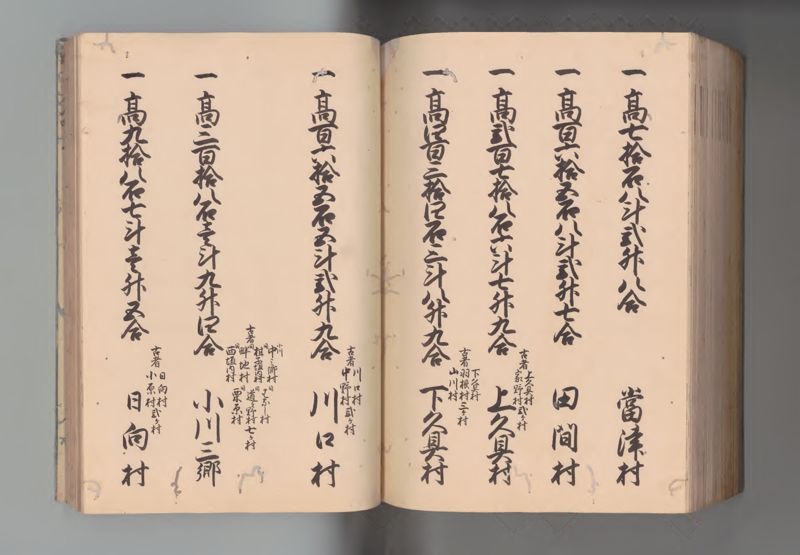 一高七拾石八斗弐升八合 當津村
一高百六拾五石八斗弐升七合 田間村
一高弐百七拾八石六斗七升九合 上久具村
古者 上久具村 家野村 弐ヶ村
一高四百三拾四石三斗八升九合 下久具村
古者 下久具村 羽根村 山川村 三ヶ村
一高百六拾五石五斗弐升九合 川口村
古者 川口村 中野村 弐ヶ村
一高三百拾八石壱斗九升四合 小川三郷
古者 小川 中之郷村 畔地村 西垣内村 道野村 栗原村 七ヶ村
一高九拾八石七斗壱升五合 日向村
古者 日向村 小原村 弐ヶ村